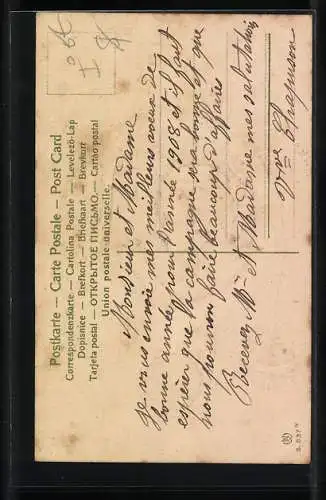 Postkarte — Carte Postale — Post Card
Correspondenzkarte — Cartolina Postale — Levelező-Lap
Dopisnice — Brefkort — Briefkaart — Brevkort
Tarjeta postal — ОТКРЫТОЕ ПИСЬМО — Cartão postal
Union postale universelle.
Monsieur et Madame
Je vous envoie mes meilleurs vœux de
bonne année pour l'année 1908 et il faut
espérer que la campagne sera bonne et que
nous pourron faire beaucoup d'affaires
Recevez Mr et Madame mes salutations
Vve Chapuson